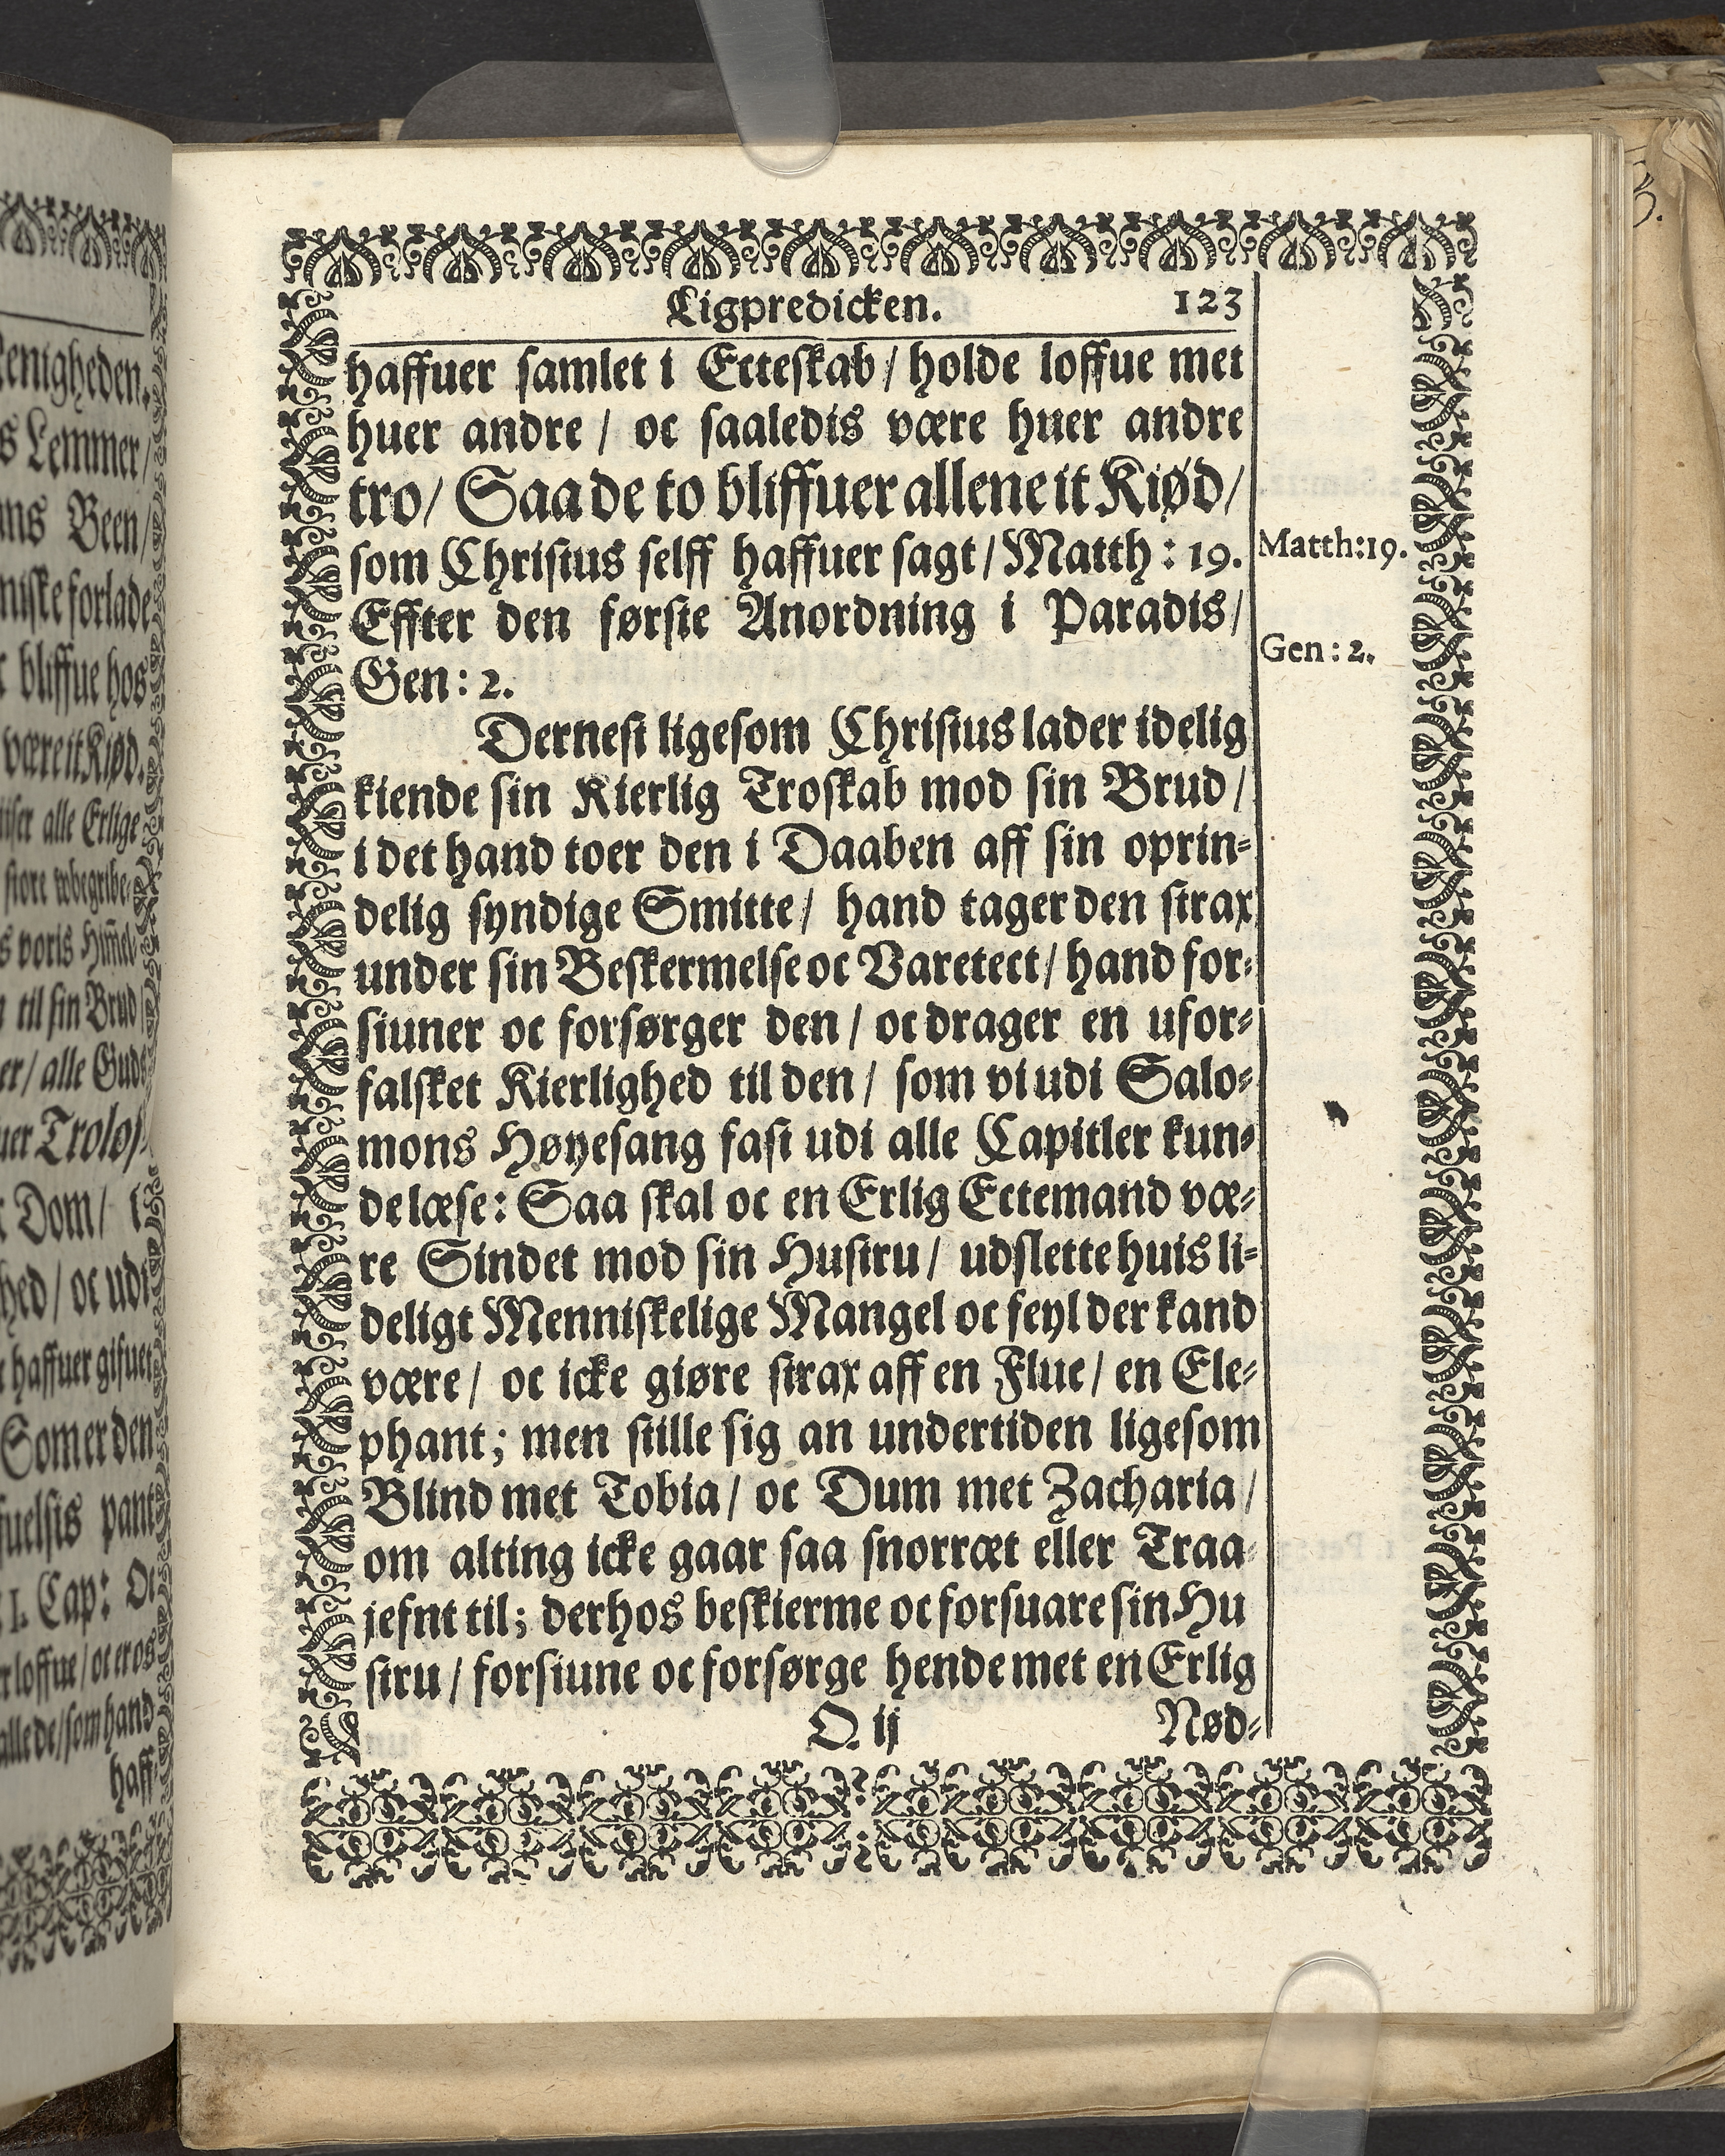 Ligpredicken. 123
haffuer samlet i Ecteskab / holde loffue met
huer andre / oc saaledis være huer andre
tro / Saa de to bliffuer allene it Kiød /
som Christus selff haffuer sagt / Matth: 19.
Matth:19.
Effter den første Anordning i Paradis /
Gen: 2.
Gen: 2.
Dernest ligesom Christus lader idelig
kiende sin Kierlig Troskab mod sin Brud /
i det hand toer den i Daaben aff sin oprin-
delig syndige Smitte / hand tager den strax
under sin Beskermelse oc Varetect / hand for-
siuner oc forsørger den / oc drager en ufor-
falsket Kierlighed til den / som vi udi Salo-
mons Høyesang fast udi alle Capitler kun-
de læse: Saa skal oc en Erlig Ectemand væ-
re Sindet mod sin Hustru / udslette huis li-
deligt Menniskelige Mangel oc feyl der kand
være / oc icke giøre strax aff en Flue / en Ele-
phant; men stille sig an undertiden ligesom
Blind met Tobia / oc Dum met Zacharia /
om alting icke gaar saa snorræt eller Traa-
jefnt til; derhos beskierme oc forsuare sin Hu
stru / forsiune oc forsørge hende met en Erlig
O. ij Nød-